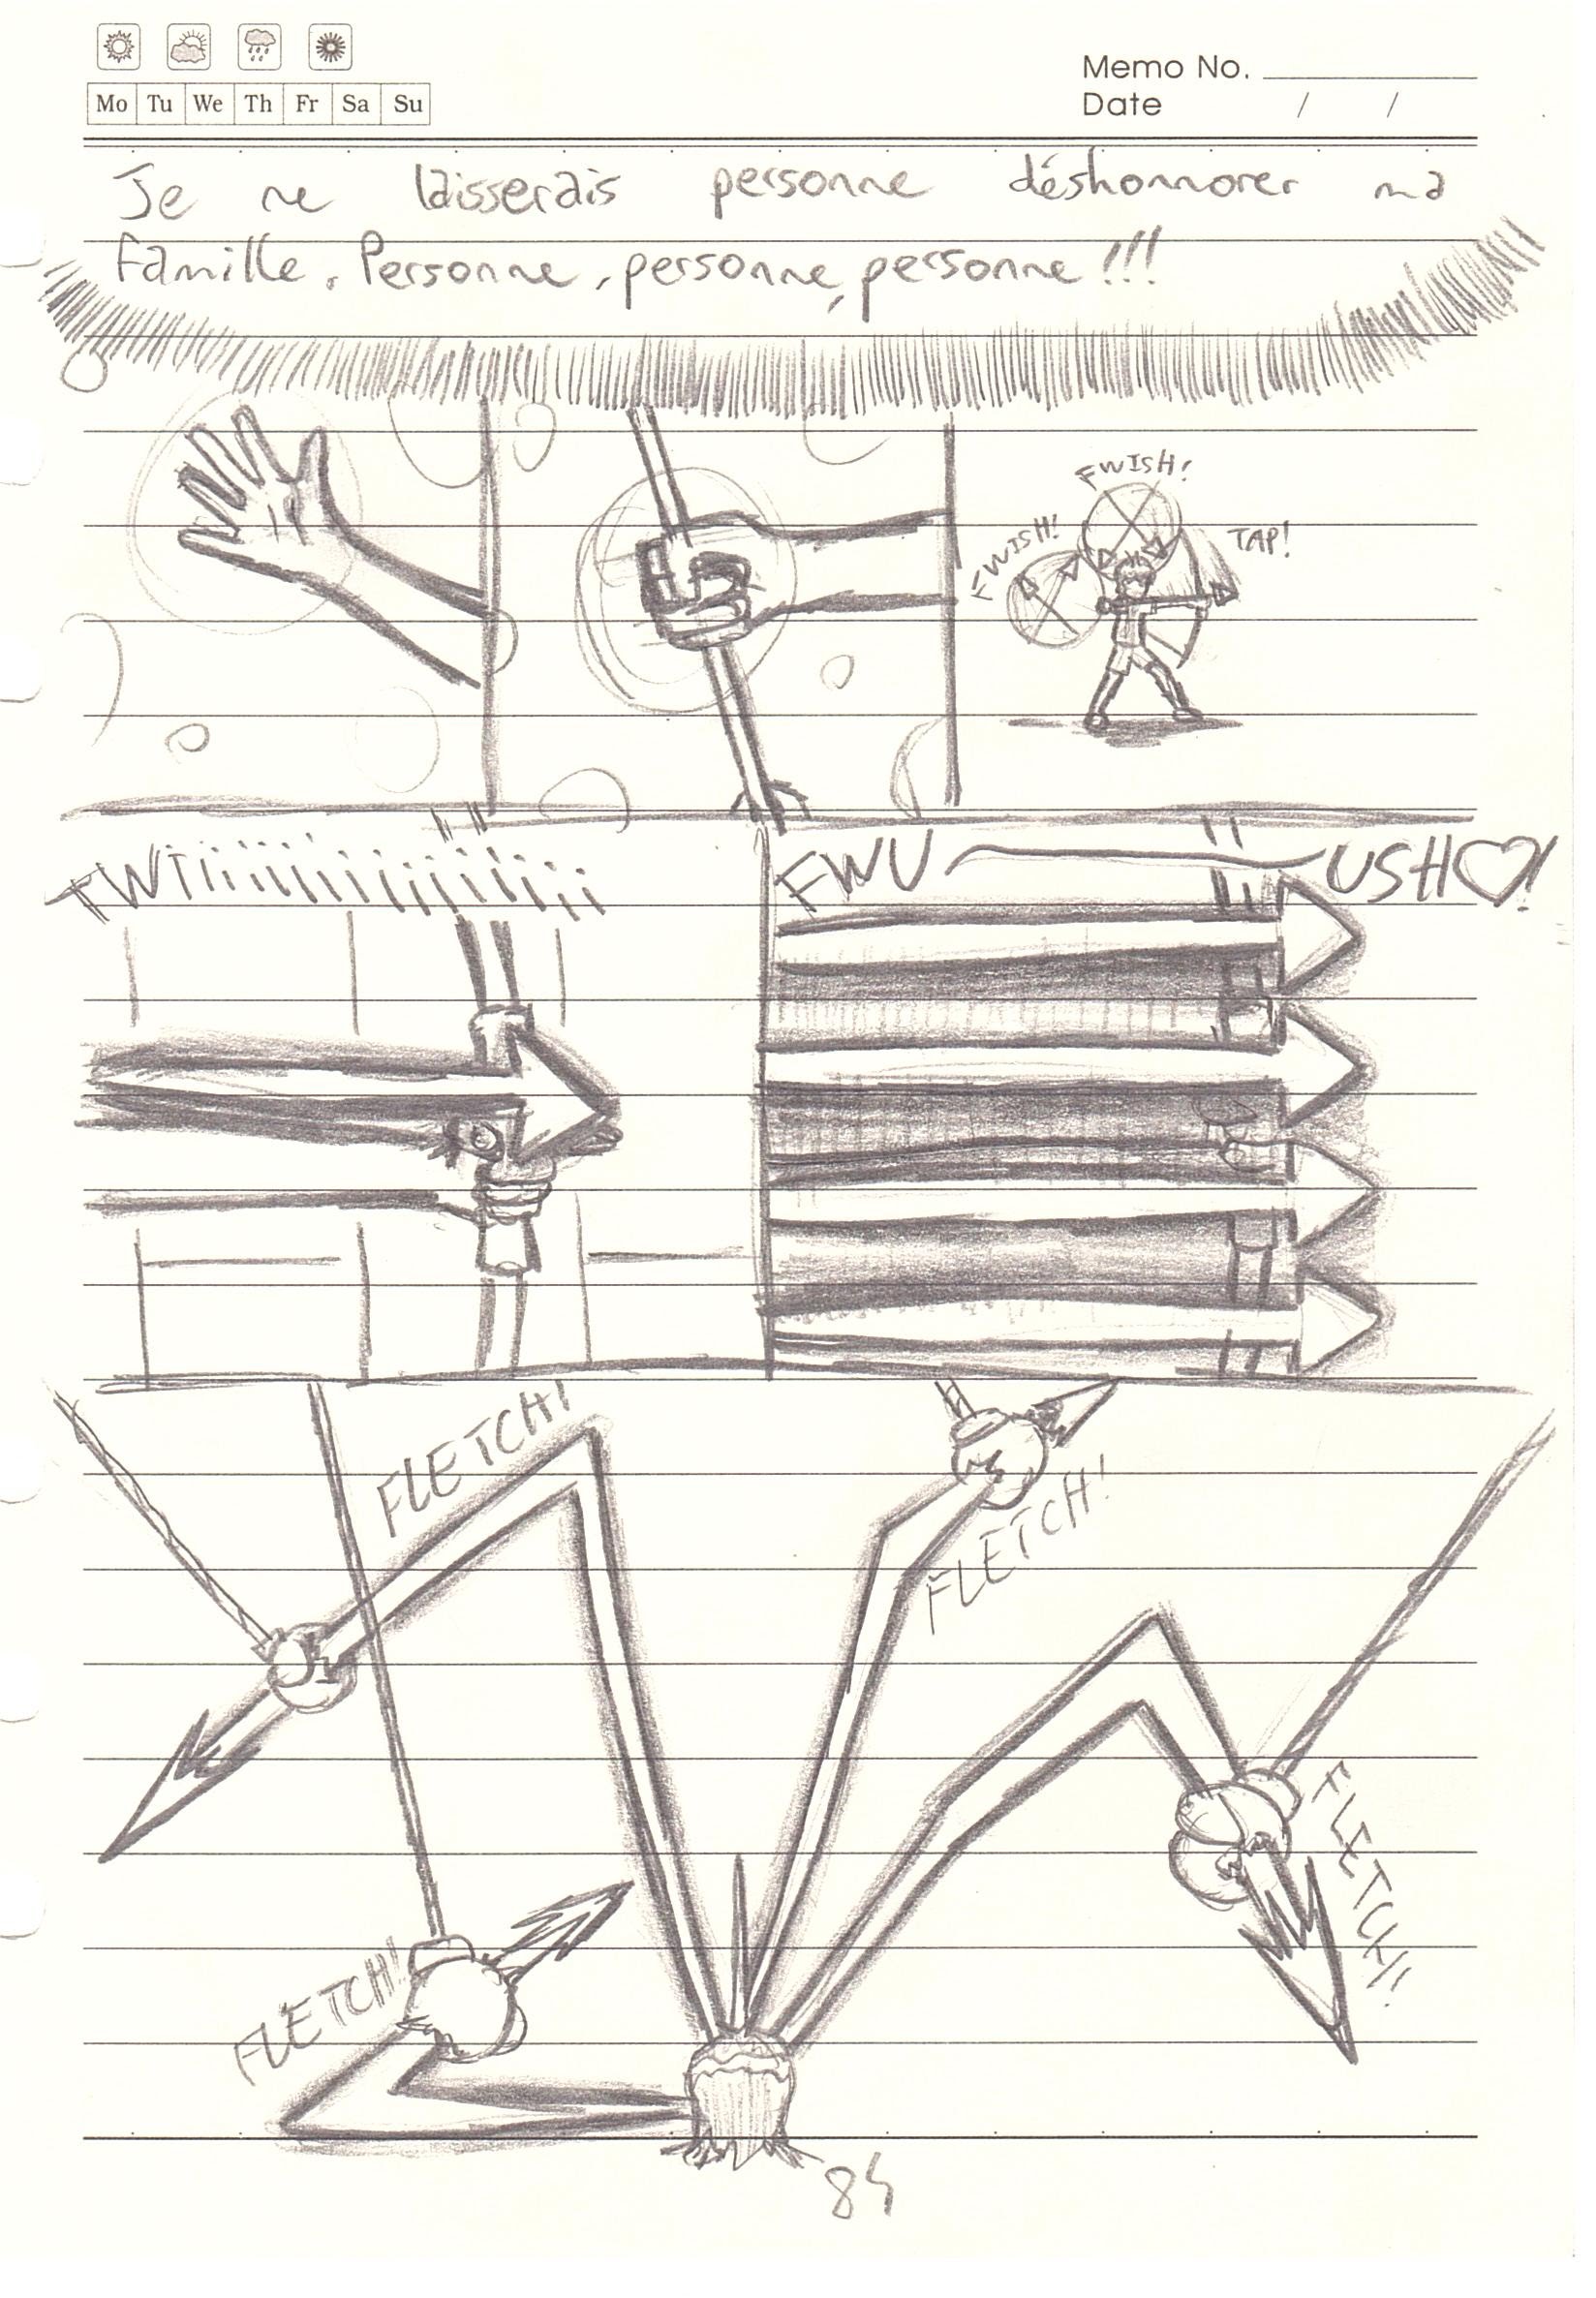 Memo No.
Mo Tu We Th Fr Sa Su
Date / /
Je ne laisserais personne déshonnorer ma
famille. Personne, personne, personne!!!
FWISH!
FWISH!
TAP!
TWIiiiiiiiiiiiiiii
FWU USH♡!
FLETCH!
FLETCH!
FLETCH!
FLETCH!
84